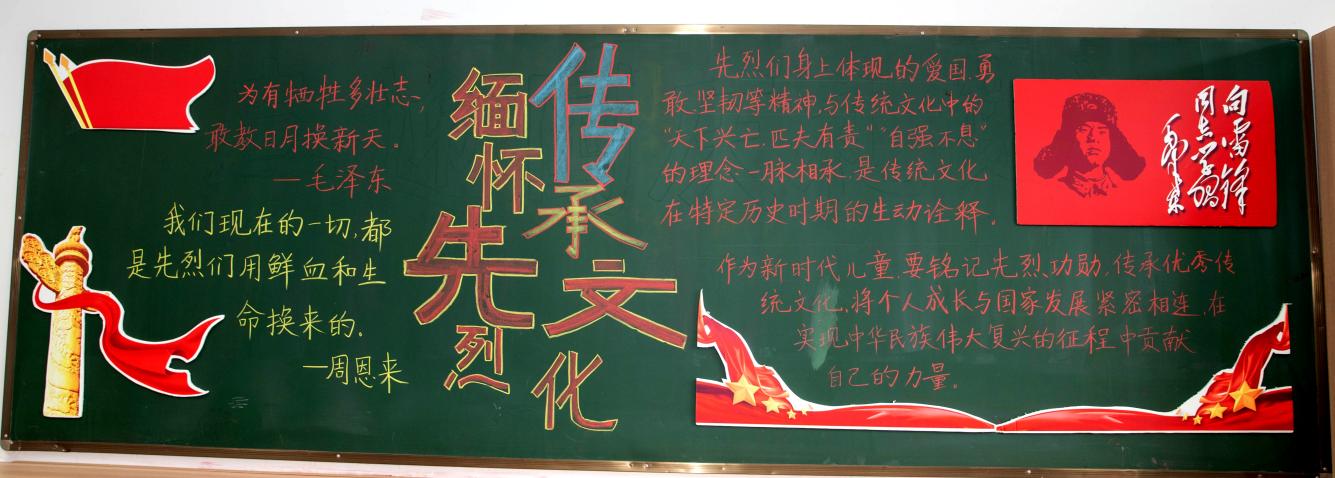 为有牺牲多壮志,
敢教日月换新天。
—毛泽东
我们现在的一切,都
是先烈们用鲜血和生
命换来的.
—周恩来
缅怀先烈
传承文化
先烈们身上体现的爱国、勇
敢、坚韧等精神,与传统文化中的
“天下兴亡,匹夫有责”“自强不息”
的理念一脉相承,是传统文化
在特定历史时期的生动诠释。
向雷锋
同志学习
毛泽东
作为新时代儿童,要铭记先烈功勋,传承优秀传
统文化,将个人成长与国家发展紧密相连,在
实现中华民族伟大复兴的征程中贡献
自己的力量。